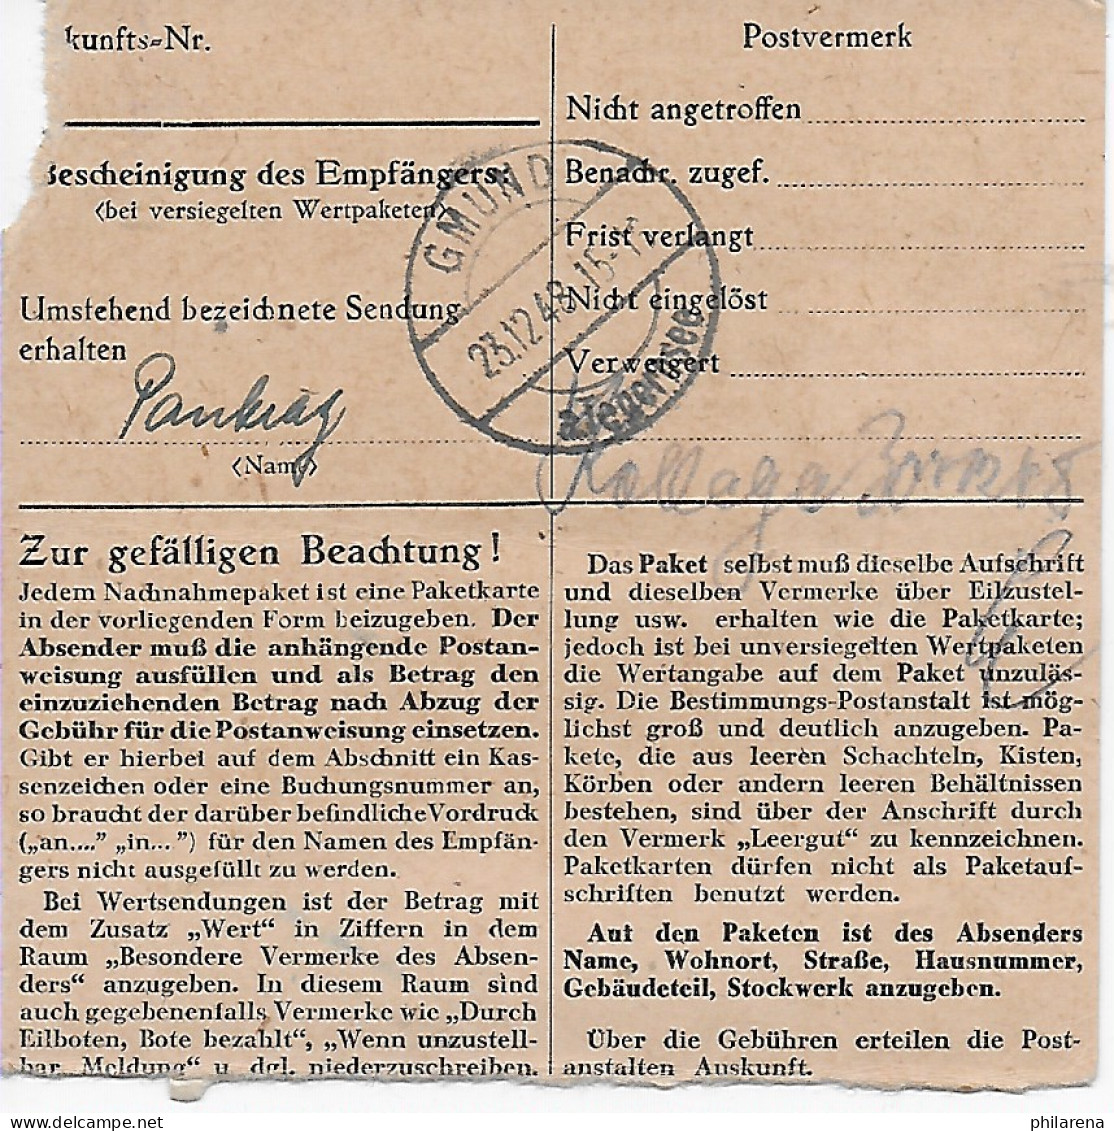 kunfts-Nr.
Bescheinigung des Empfängers:
<bei versiegelten Wertpaketen>
Umstehend bezeichnete Sendung
erhalten
<Name>
Postvermerk
Nicht angetroffen
Benachr. zugef.
Frist verlangt
Nicht eingelöst
Verweigert
GMUND
23.12.48.15-
a.Tegernsee
Zur gefälligen Beachtung!
Jedem Nachnahmepaket ist eine Paketkarte
in der vorliegenden Form beizugeben. Der
Absender muß die anhängende Postan-
weisung ausfüllen und als Betrag den
einzuziehenden Betrag nach Abzug der
Gebühr für die Postanweisung einsetzen.
Gibt er hierbei auf dem Abschnitt ein Kas-
senzeichen oder eine Buchungsnummer an,
so braucht der darüber befindliche Vordruck
(„an....” „in...”) für den Namen des Empfän-
gers nicht ausgefüllt zu werden.
Bei Wertsendungen ist der Betrag mit
dem Zusatz „Wert“ in Ziffern in dem
Raum „Besondere Vermerke des Absen-
ders“ anzugeben. In diesem Raum sind
auch gegebenenfalls Vermerke wie „Durch
Eilboten, Bote bezahlt“, „Wenn unzustell-
bar Meldung“ u. dgl. niederzuschreiben.
Das Paket selbst muß dieselbe Aufschrift
und dieselben Vermerke über Eilzustel-
lung usw. erhalten wie die Paketkarte;
jedoch ist bei unversiegelten Wertpaketen
die Wertangabe auf dem Paket unzuläs-
sig. Die Bestimmungs-Postanstalt ist mög-
lichst groß und deutlich anzugeben. Pa-
kete, die aus leeren Schachteln, Kisten,
Körben oder andern leeren Behältnissen
bestehen, sind über der Anschrift durch
den Vermerk „Leergut“ zu kennzeichnen.
Paketkarten dürfen nicht als Paketauf-
schriften benutzt werden.
Auf den Paketen ist des Absenders
Name, Wohnort, Straße, Hausnummer,
Gebäudeteil, Stockwerk anzugeben.
Über die Gebühren erteilen die Post-
anstalten Auskunft.
philarena